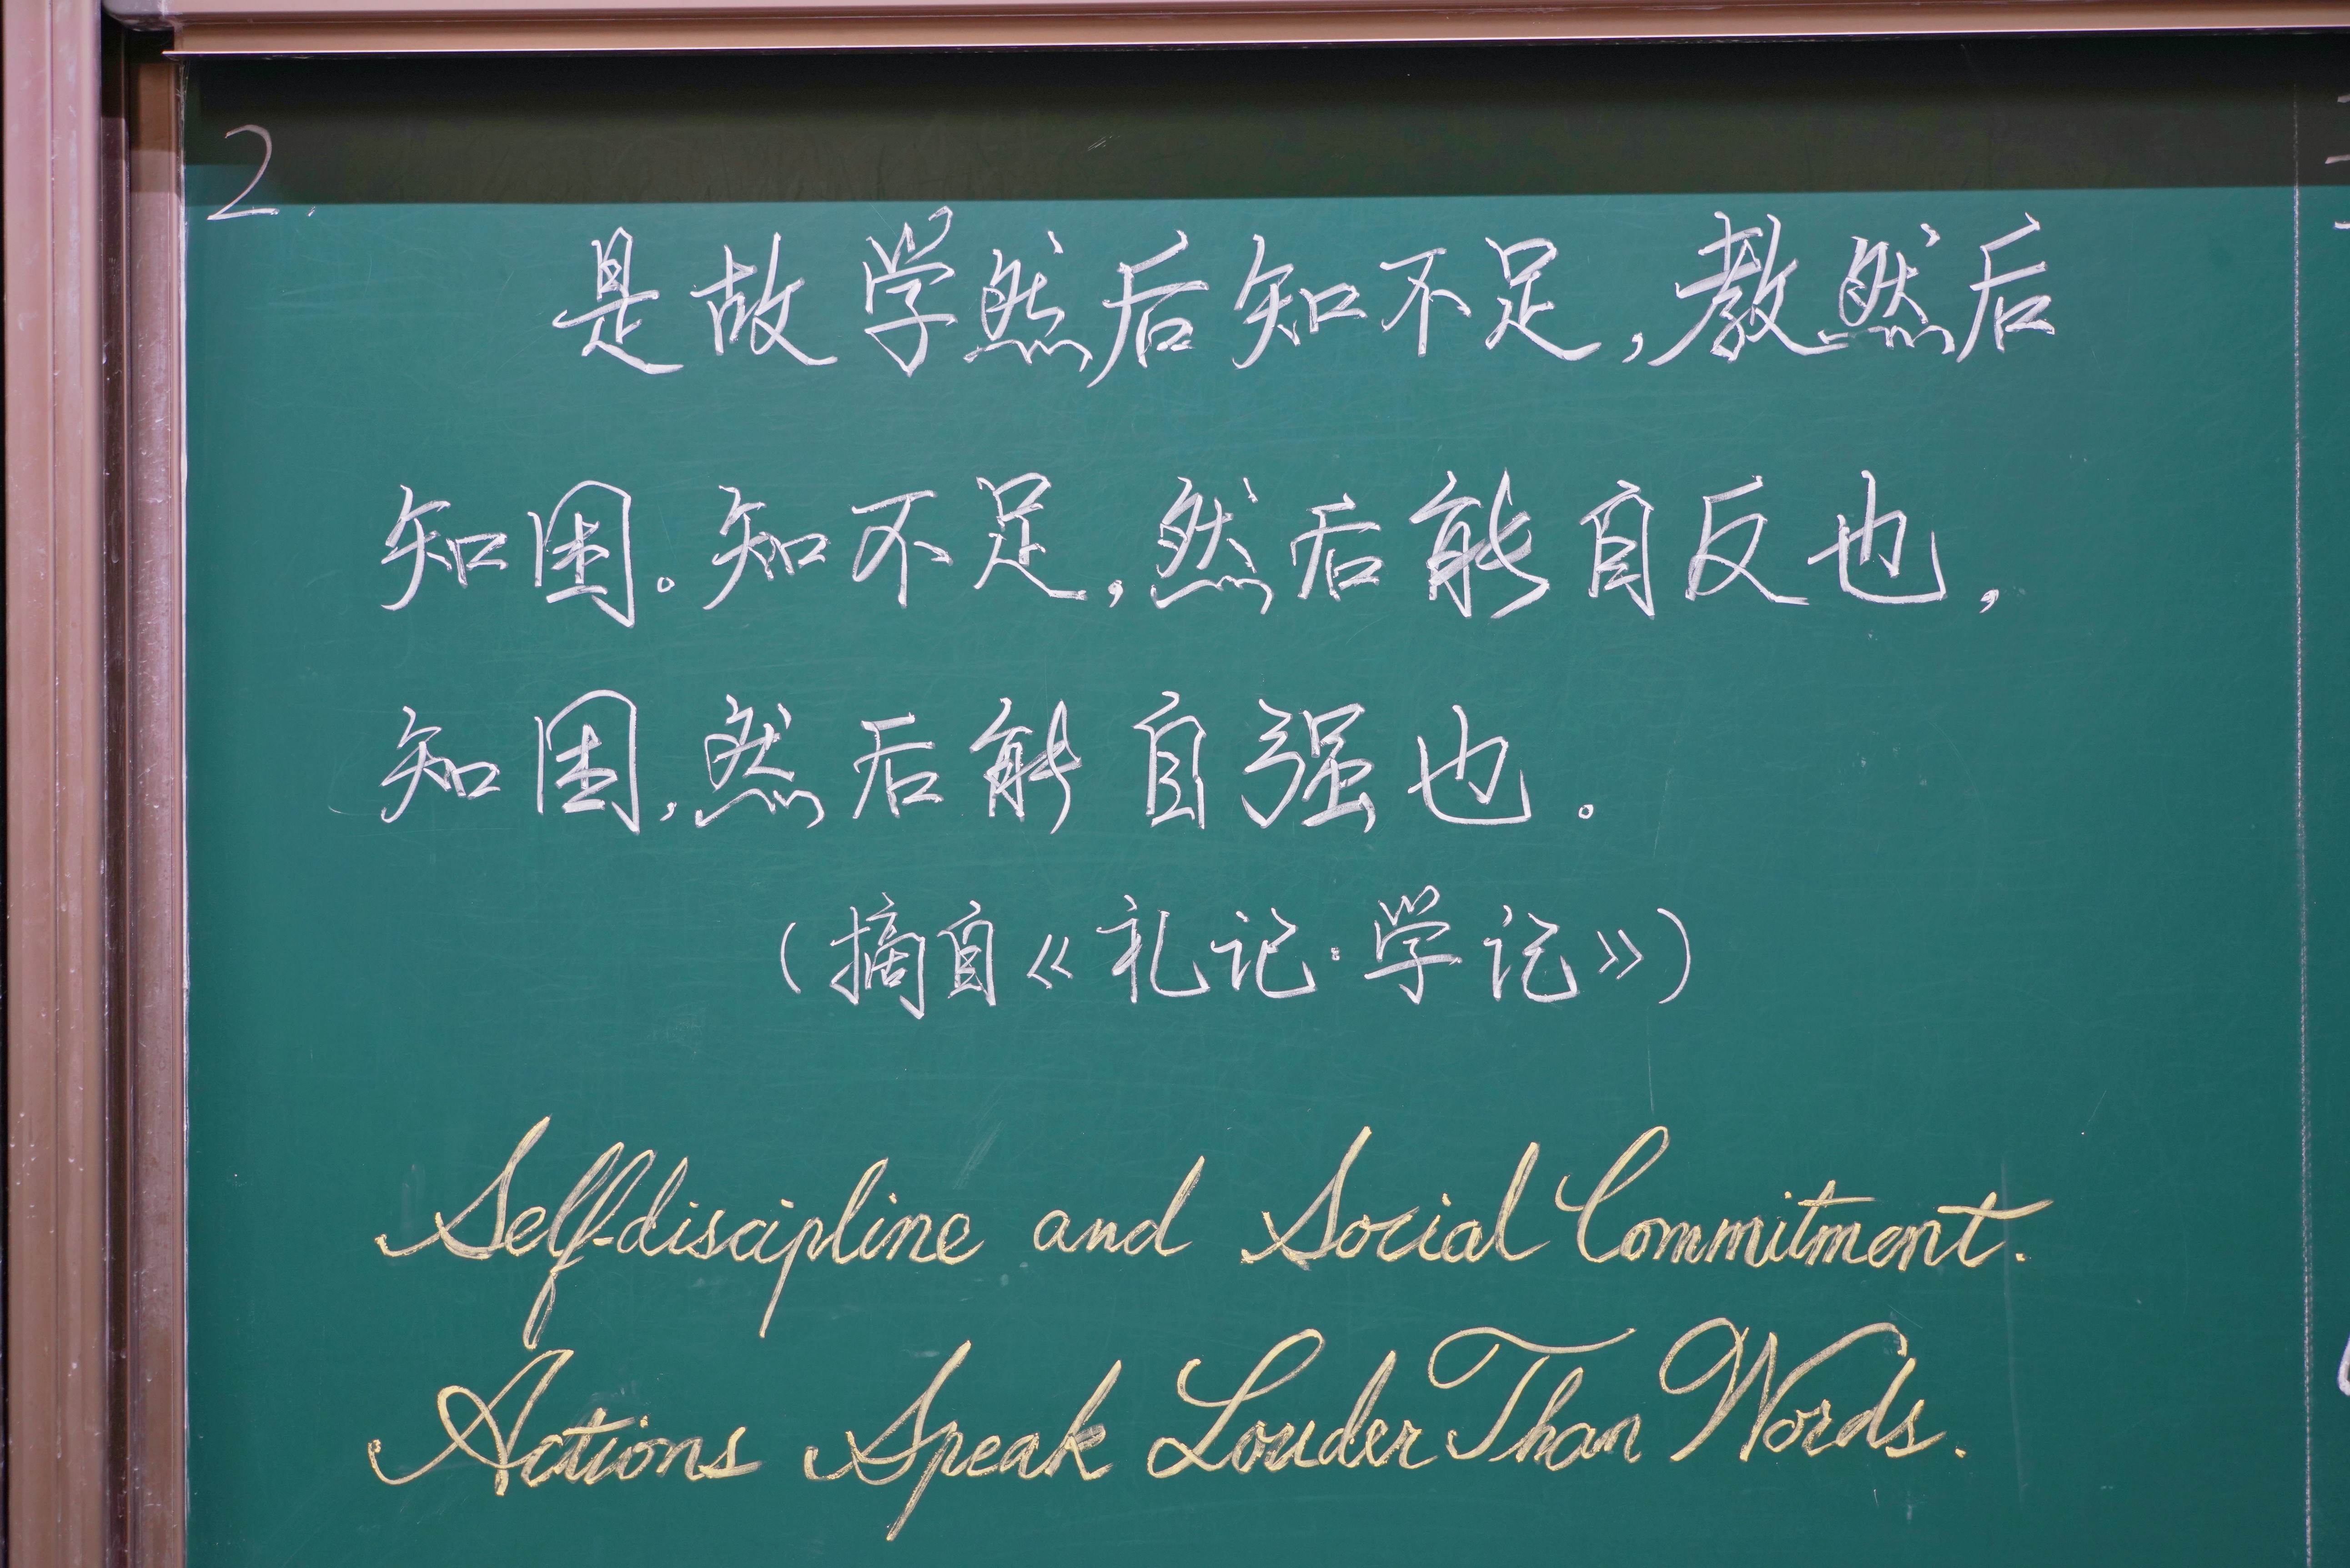 2.
是故学然后知不足,教然后
知困。知不足,然后能自反也,
知困,然后能自强也。
(摘自《礼记·学记》)
Self-discipline and Social Commitment.
Actions Speak Louder Than Words.